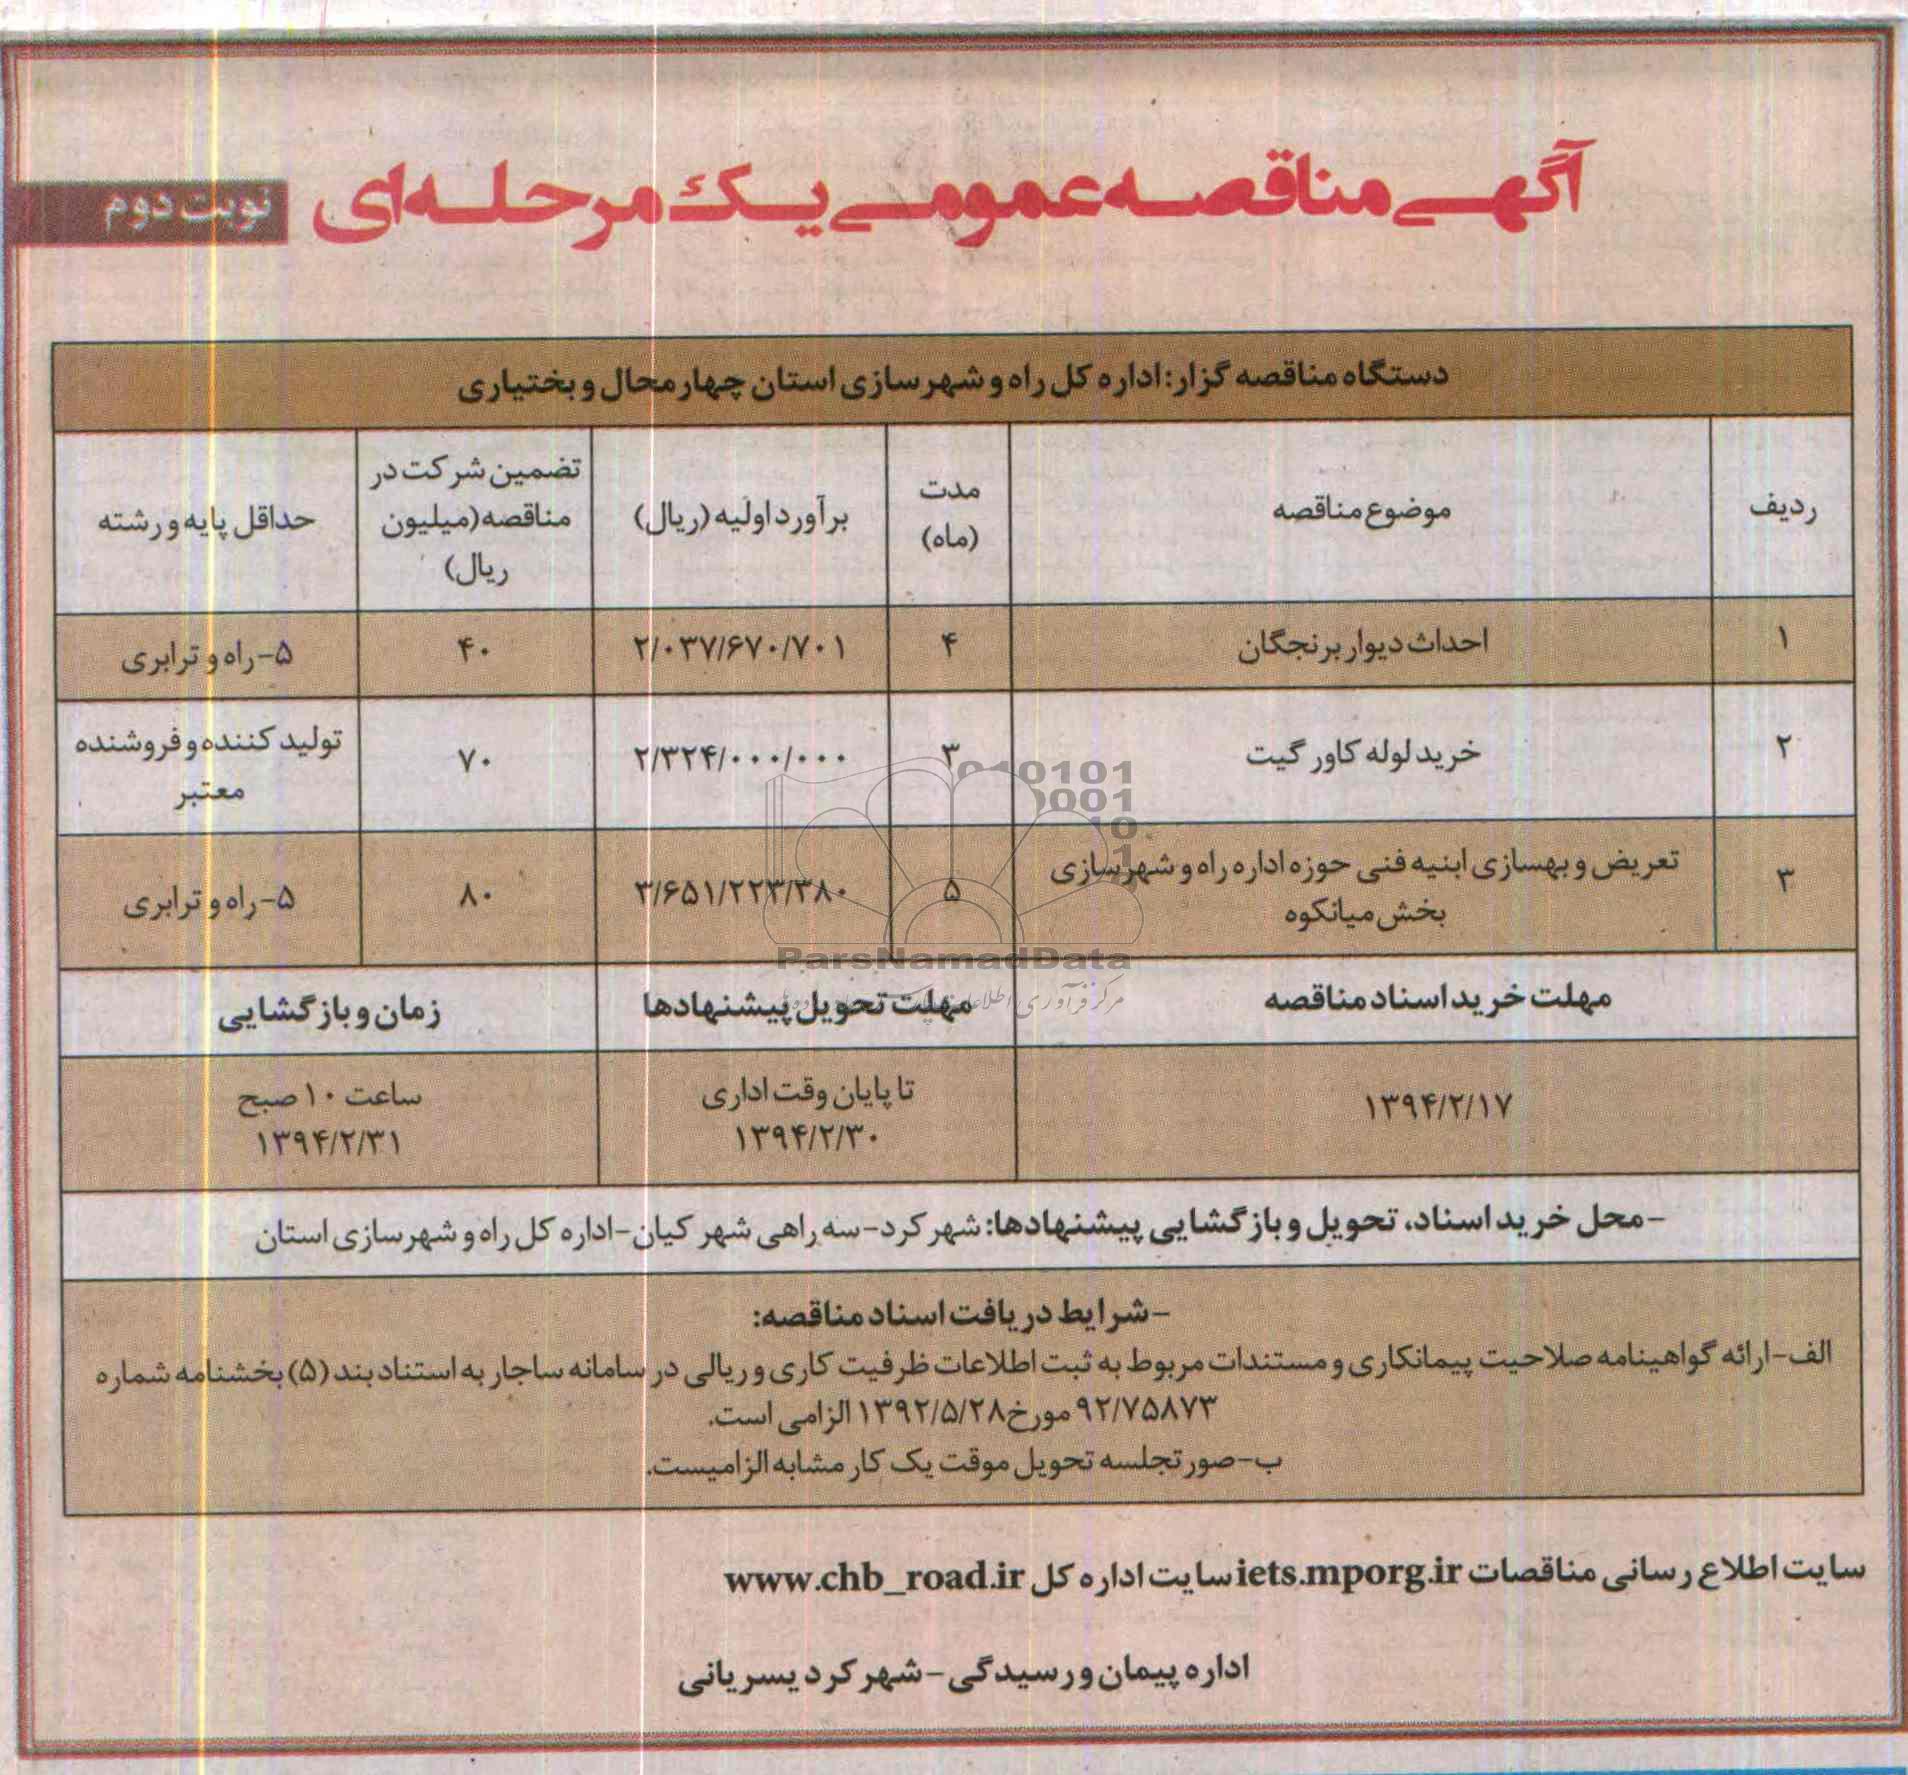 آگهی مناقصه عمومی یک مرحله‌ای
نوبت دوم
دستگاه مناقصه گزار: اداره کل راه و شهرسازی استان چهارمحال و بختیاری
ردیف
موضوع مناقصه
مدت
(ماه)
برآورد اولیه (ریال)
تضمین شرکت در
مناقصه (میلیون
ریال)
حداقل پایه و رشته
۱
احداث دیوار برنجگان
۴
۲/۰۳۷/۶۷۰/۷۰۱
۴۰
۵-راه و ترابری
۲
خرید لوله کاور گیت
۳
۲/۳۲۴/۰۰۰/۰۰۰
۷۰
تولید کننده و فروشنده
معتبر
۳
تعریض و بهسازی ابنیه فنی حوزه اداره راه و شهرسازی
بخش میانکوه
۵
۳/۶۵۱/۲۲۳/۳۸۰
۸۰
۵-راه و ترابری
ParsNamadData
مهلت خرید اسناد مناقصه
مهلت تحویل پیشنهادها
زمان و بازگشایی
۱۳۹۴/۲/۱۷
تا پایان وقت اداری
۱۳۹۴/۲/۳۰
ساعت ۱۰ صبح
۱۳۹۴/۲/۳۱
-محل خرید اسناد، تحویل و بازگشایی پیشنهادها: شهرکرد-سه راهی شهر کیان-اداره کل راه و شهرسازی استان
-شرایط دریافت اسناد مناقصه:
الف-ارائه گواهینامه صلاحیت پیمانکاری و مستندات مربوط به ثبت اطلاعات ظرفیت کاری و ریالی در سامانه ساجار به استناد بند (۵) بخشنامه شماره
۹۲/۷۵۸۷۳ مورخ ۱۳۹۲/۵/۲۸ الزامی است.
ب-صورتجلسه تحویل موقت یک کار مشابه الزامیست.
سایت اطلاع رسانی مناقصات iets.mporg.ir سایت اداره کل www.chb_road.ir
اداره پیمان و رسیدگی-شهرکرد یسریانی